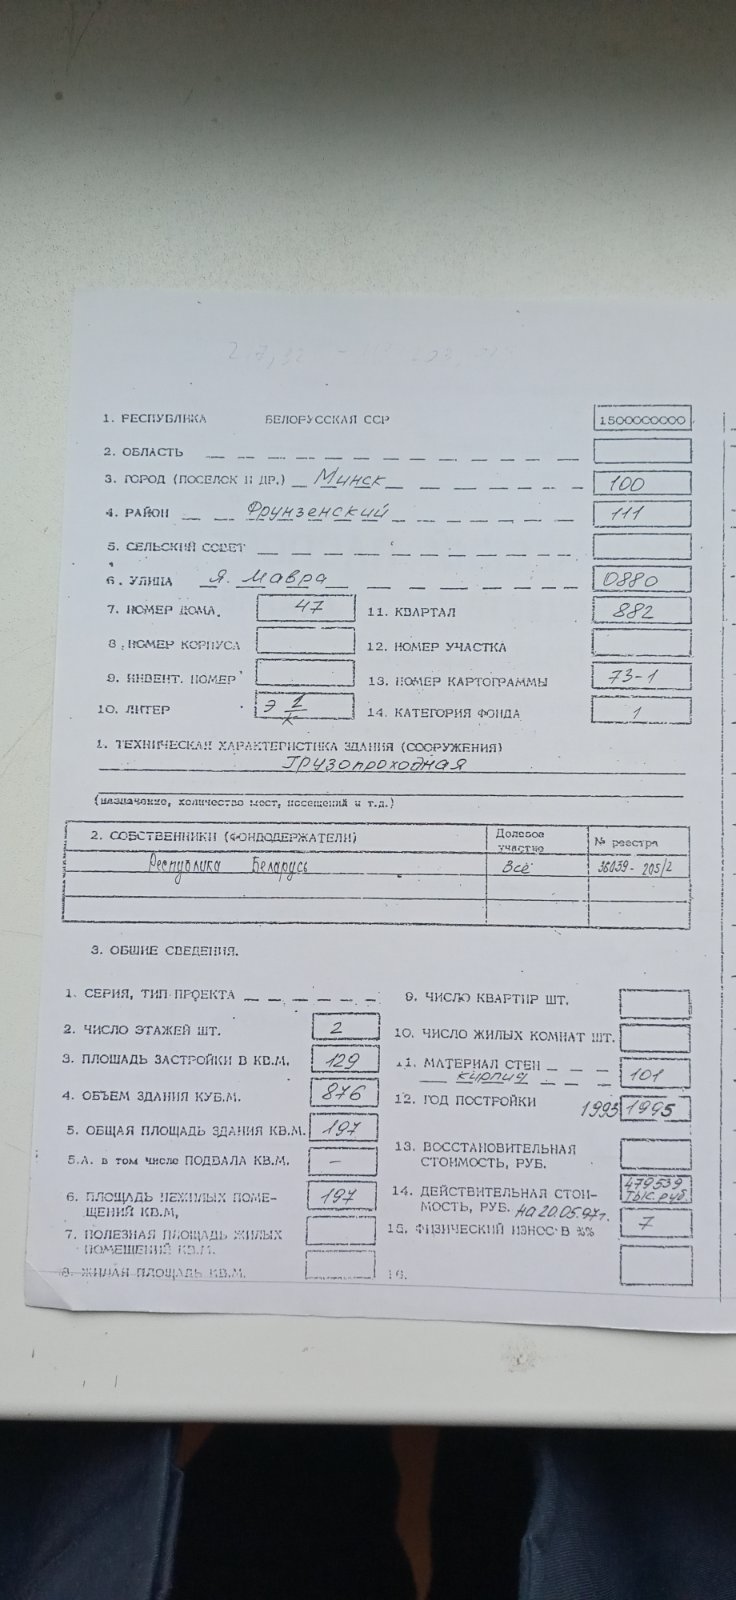 1. РЕСПУБЛИКА БЕЛОРУССКАЯ ССР 1500000000
2. ОБЛАСТЬ
3. ГОРОД (ПОСЕЛОК И ДР.) Минск 100
4. РАЙОН Фрунзенский 111
5. СЕЛЬСКИЙ СОВЕТ
6. УЛИЦА Я. Мавра 0880
7. НОМЕР ДОМА. 47 11. КВАРТАЛ 882
8. НОМЕР КОРПУСА 12. НОМЕР УЧАСТКА
9. ИНВЕНТ. НОМЕР 13. НОМЕР КАРТОГРАММЫ 73-1
10. ЛИТЕР Э 1/К 14. КАТЕГОРИЯ ФОНДА 1
1. ТЕХНИЧЕСКАЯ ХАРАКТЕРИСТИКА ЗДАНИЯ (СООРУЖЕНИЯ)
Грузопроходная
(назначение, количество мест, посещений и т.д.)
2. СОБСТВЕННИКИ (ФОНДОДЕРЖАТЕЛИ) Долевое участие № реестра
Республика Беларусь Всё 36039-205/2
3. ОБЩИЕ СВЕДЕНИЯ.
1. СЕРИЯ, ТИП ПРОЕКТА 9. ЧИСЛО КВАРТИР ШТ.
2. ЧИСЛО ЭТАЖЕЙ ШТ. 2 10. ЧИСЛО ЖИЛЫХ КОМНАТ ШТ.
3. ПЛОЩАДЬ ЗАСТРОЙКИ В КВ.М. 129 11. МАТЕРИАЛ СТЕН
кирпич 101
4. ОБЪЕМ ЗДАНИЯ КУБ.М. 876 12. ГОД ПОСТРОЙКИ 1995 1995
5. ОБЩАЯ ПЛОЩАДЬ ЗДАНИЯ КВ.М. 197
5.А. в том числе ПОДВАЛА КВ.М. — 13. ВОССТАНОВИТЕЛЬНАЯ
СТОИМОСТЬ, РУБ.
6. ПЛОЩАДЬ НЕЖИЛЫХ ПОМЕ-
ЩЕНИЙ КВ.М, 197
14. ДЕЙСТВИТЕЛЬНАЯ СТОИ-
МОСТЬ, РУБ. на 20.05.97г. 479539 тыс. руб.
7. ПОЛЕЗНАЯ ПЛОЩАДЬ ЖИЛЫХ
ПОМЕЩЕНИЙ КВ.М.
15. ФИЗИЧЕСКИЙ ИЗНОС В %% 7
8. ЖИЛАЯ ПЛОЩАДЬ КВ.М. 16.